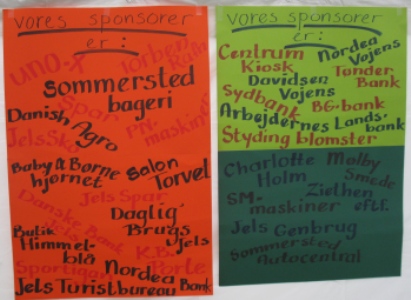 vores sponsorer
er:
uno-x
Torben
Ravn
Sommersted
bageri
Spar
Danish Agro
PN-
maskin
Jels Sko
Baby & Børne
hjørnet
Salon
Torvet
Jels Spar
Danske Bank
Daglig'
Brugs
Jels
Butik
Himmel-
blå
K.B.
Porte
Sportigan
Nordea
Bank
Jels Turistbureau
vores sponsorer
er:
Centrum
Kiosk
Nordea
Vojens
Davidsen
Vojens
Tønder
Bank
Sydbank
BG-bank
Arbejdernes Lands-
bank
Styding blomster
Charlotte
Holm
Mølby
Smede
SM-
maskiner
Ziethen
eftf.
Jels Genbrug
Sommersted
Autocentral